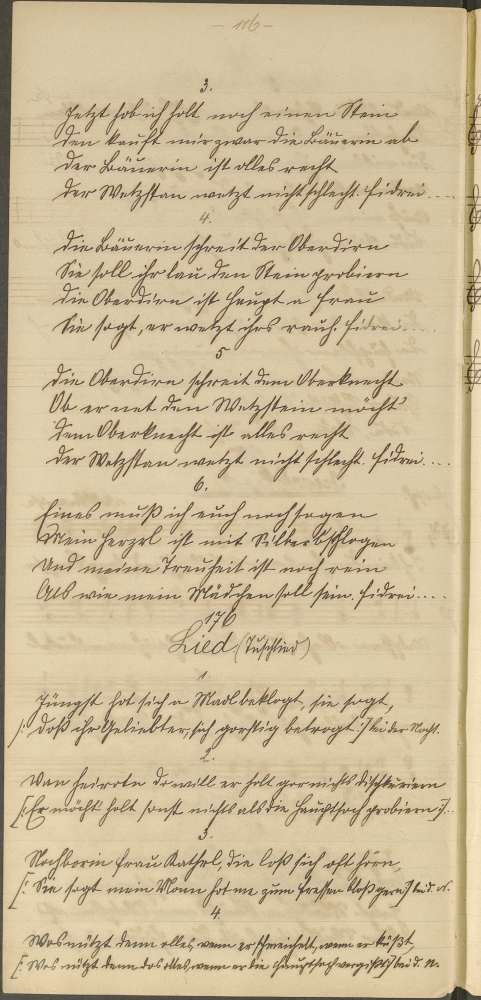 - 116 -
3.
Jetzt hob ich holt noch einen Stein
Den kauft mir zwar die Bäuerin ab
Der Bäuerin ist olles recht
Der Wetzstan wetzt nicht schlecht. fidrei....
4.
Die Bäuerin schreit der Oberdirn
Sie soll ihr lau den Stein probiern
Die Oberdirn ist haupt a Frau
Sie sogt, er wetzt ihrs rauh. fidrei....
5
Die Oberdirn schreit dem Oberknecht
Ob er net den Wetzstein möcht'
Dem Oberknecht ist alles recht
Der Wetzstan wetzt nicht schlecht. fidrei....
6.
Eines muß ich euch noch sogen
Mein Herzerl ist mit Silber b'schlogen
Und meine Treuheit ist noch rein
Als wie mein Mädchen soll sein. fidrei....
176
Lied (Tuschlied)
1.
Jüngst hot sich a Madl beklogt, sie sogt,
/: Doß ihr Geliebter, sich gorstig betrogt :/ bei der Nocht.
2.
Von heirotn do will er holt gor nichts dischkuriern
[: Er möcht' holt sonst nichts als die Hauptsoch probiern :]..
3.
Nochborin Frau Kathrl, die loß sich oft hörn,
[: Sie sogt mein Monn hot me zum fressen bloß gern :] bei d. N.
4.
Wos nützt denn olles, wenn er schmeichelt, wenn er küßt,
[: Wos nützt denn dos olles, wenn er die Hauptsoch vergißt :] bei d. N.